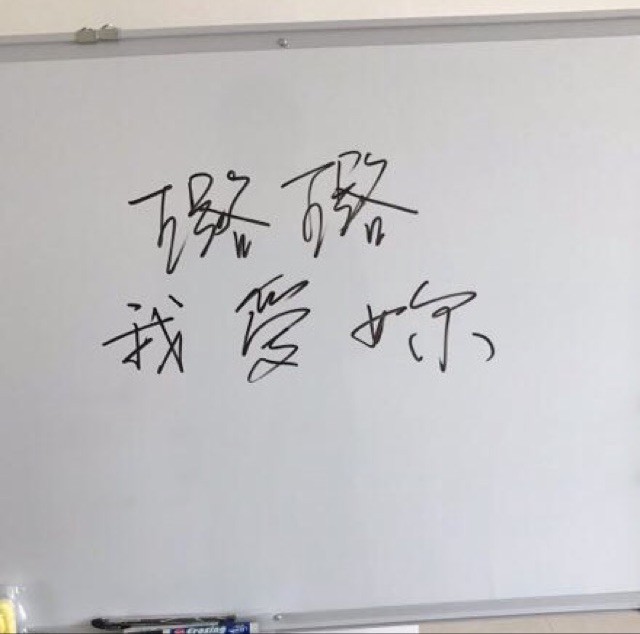 璐璐
我愛妳